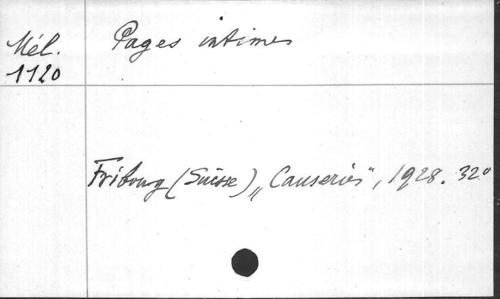 Mél.
1120
Pages intimes
Fribourg (Suisse) „Causeries", 1928. 32°